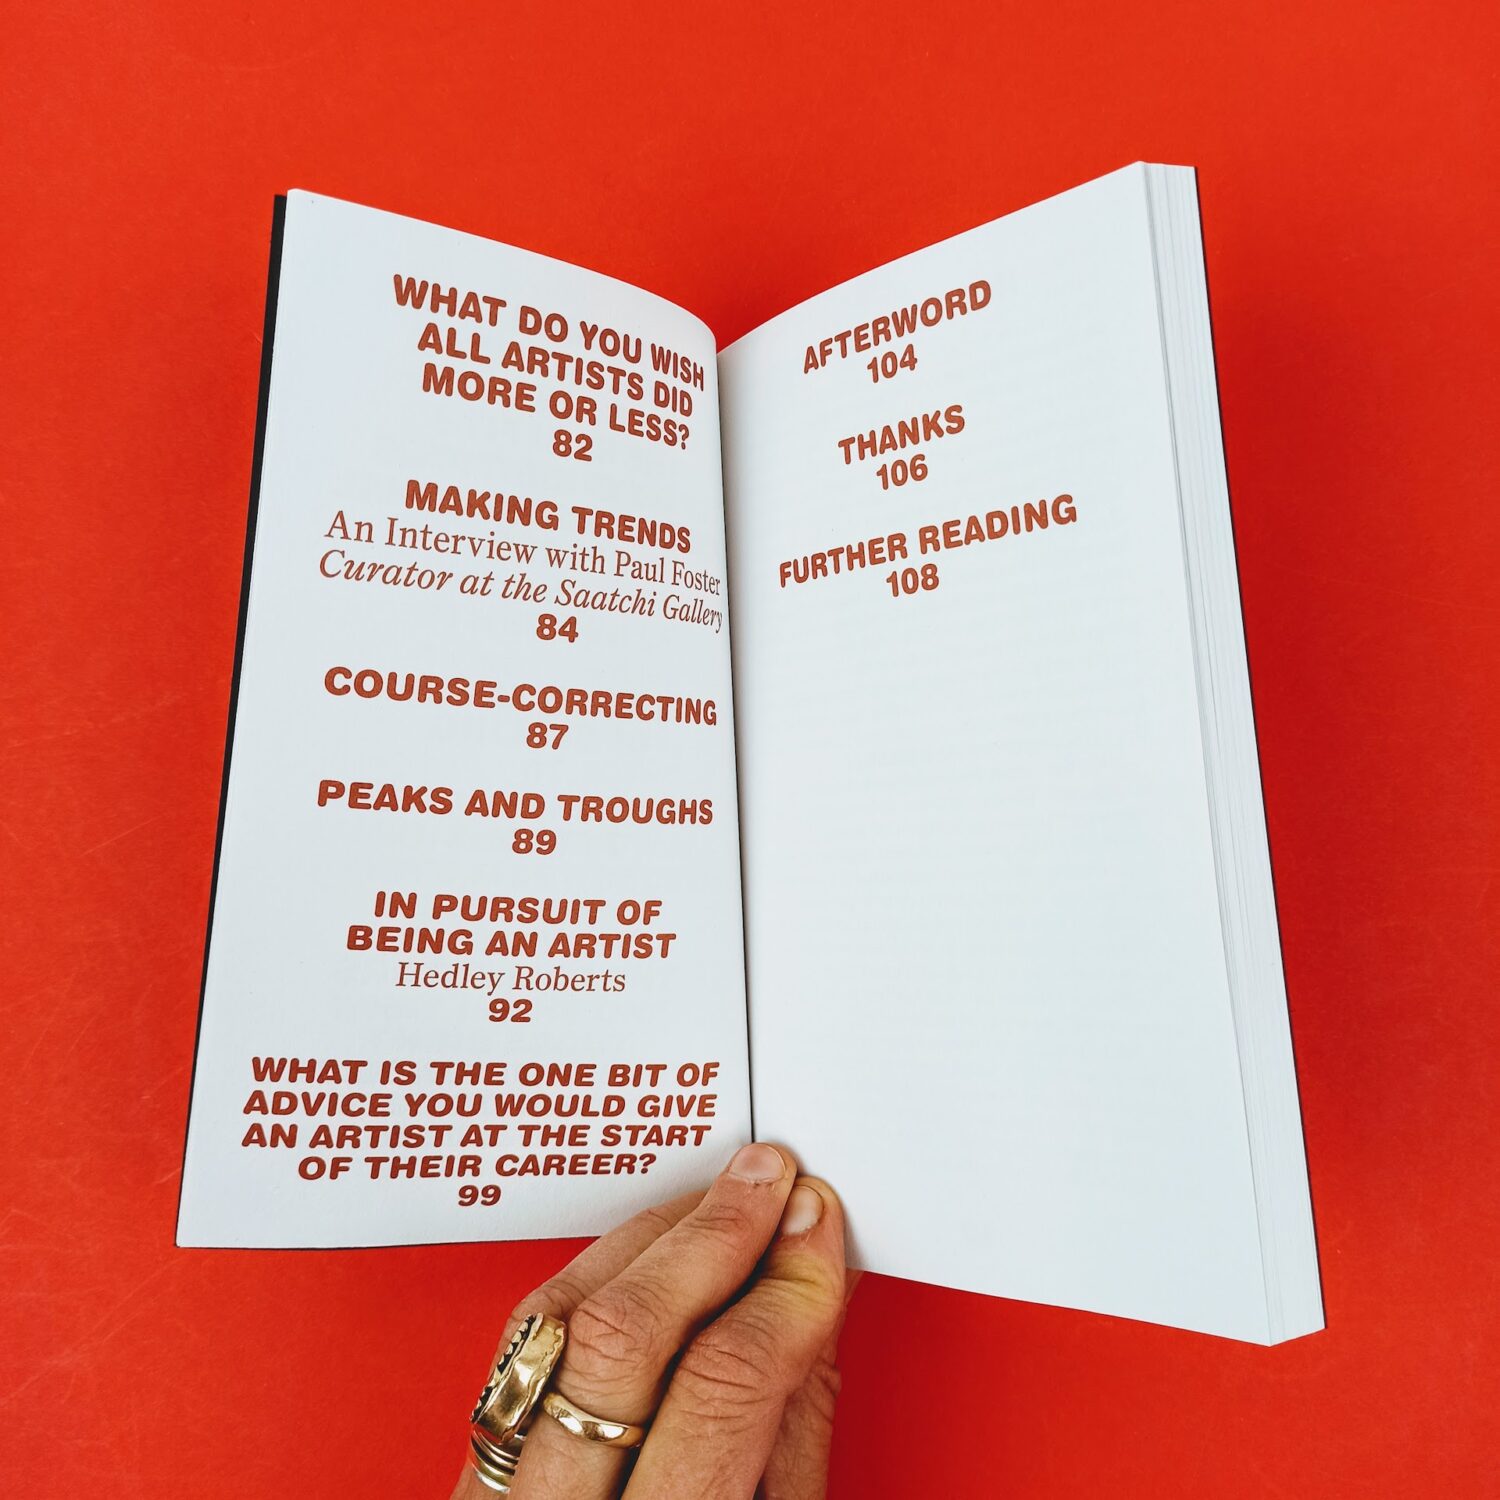 WHAT DO YOU WISH
ALL ARTISTS DID
MORE OR LESS?
82
MAKING TRENDS
An Interview with Paul Foster
Curator at the Saatchi Gallery
84
COURSE-CORRECTING
87
PEAKS AND TROUGHS
89
IN PURSUIT OF
BEING AN ARTIST
Hedley Roberts
92
WHAT IS THE ONE BIT OF
ADVICE YOU WOULD GIVE
AN ARTIST AT THE START
OF THEIR CAREER?
99
AFTERWORD
104
THANKS
106
FURTHER READING
108